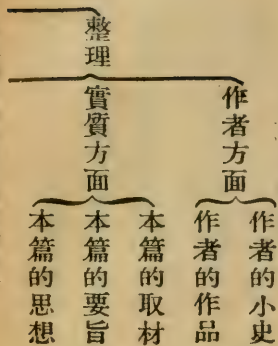 整理
作者方面
作者的小史
作者的作品
實質方面
本篇的取材
本篇的要旨
本篇的思想